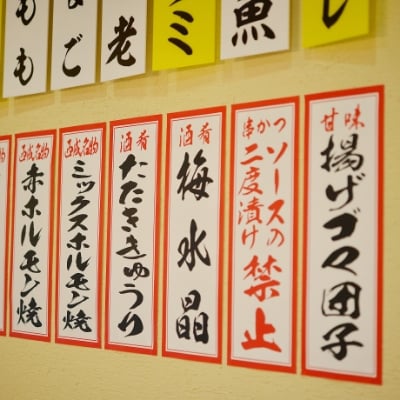 もも
なご
老
ミ
魚
し
甘味
揚げゴマ団子
串かつ
ソースの
二度漬け
禁止
酒肴
梅水晶
酒肴
たたききゅうり
西成名物
ミックスホルモン焼
西成名物
赤ホルモン焼